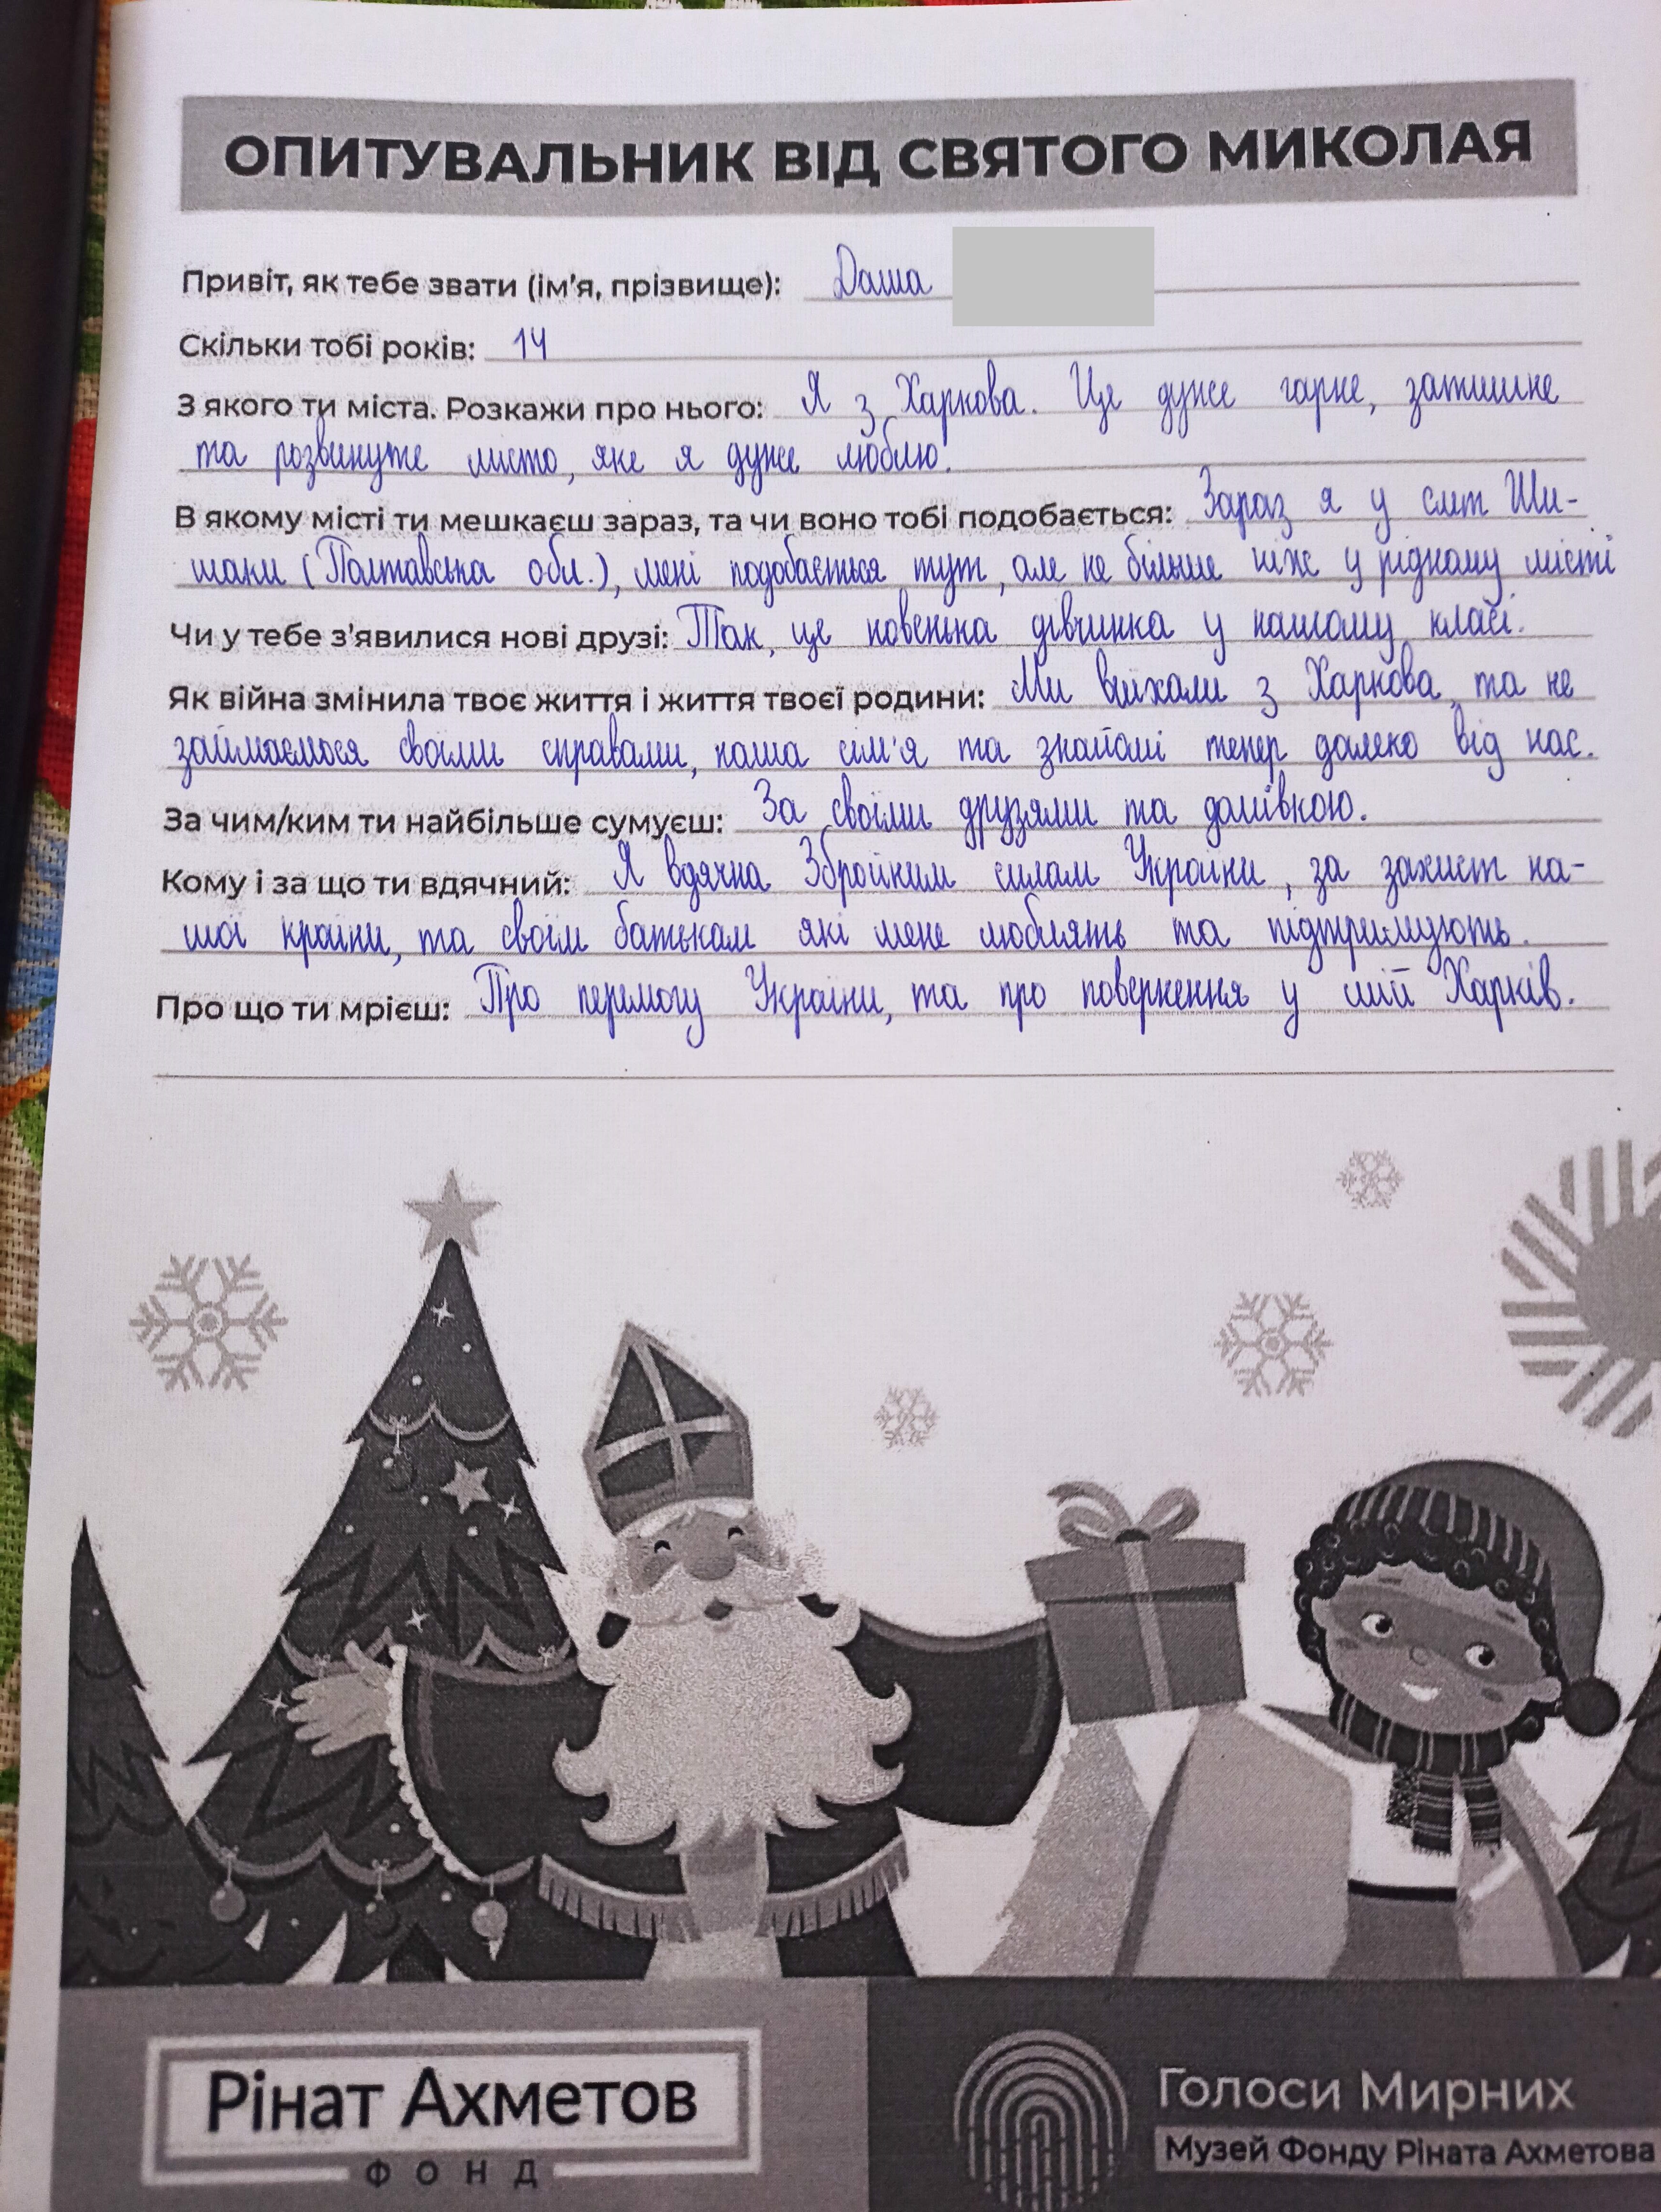 ОПИТУВАЛЬНИК ВІД СВЯТОГО МИКОЛАЯ
Привіт, як тебе звати (ім'я, прізвище): Даша
Скільки тобі років: 14
З якого ти міста. Розкажи про нього: Я з Харкова. Це дуже гарне, затишне
та розвинуте місто, яке я дуже люблю!
В якому місті ти мешкаєш зараз, та чи воно тобі подобається: Зараз я у смт Ши-
шаки (Полтавська обл.), мені подобається тут, але не більше ніж у рідному місті
Чи у тебе з'явилися нові друзі: Так, це новенька дівчинка у нашому класі.
Як війна змінила твоє життя і життя твоєї родини: Ми виїхали з Харкова, та не
займаємося своїми справами, наша сім'я та знайомі тепер далеко від нас.
За чим/ким ти найбільше сумуєш: За своїми друзями та домівкою.
Кому і за що ти вдячний: Я вдячна Збройним силам України, за захист на-
шої країни, та своїм батькам які мене люблять та підтримують.
Про що ти мрієш: Про перемогу України, та про повернення у мій Харків.
Рінат Ахметов
ФОНД
Голоси Мирних
Музей Фонду Ріната Ахметова